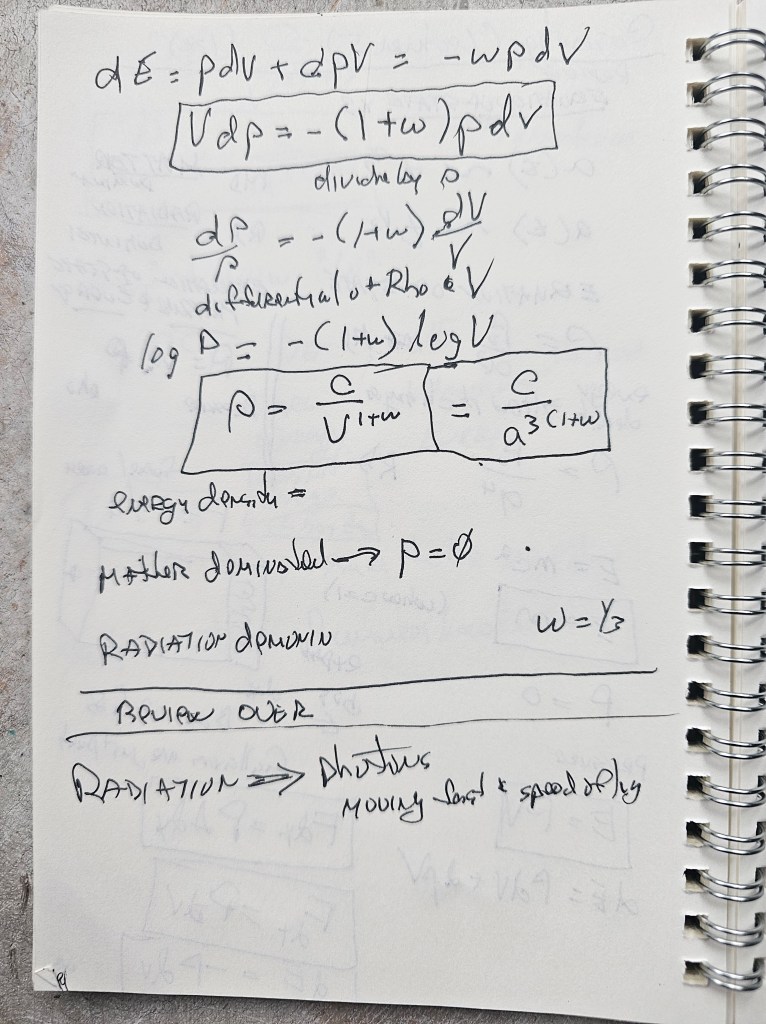 dE = ρdV + dρV = -wρdV
Vdρ = -(1+w)ρdV
divide by ρ
dρ/ρ = -(1+w) dV/V
differential of Rho & V
log ρ = -(1+w) log V
ρ = C/V^(1+w) = C/a^(3(1+w))
energy density =
MATTER dominated → P=∅
RADIATION domonin w = 1/3
REVIEW OVER
RADIATION ⇒ photons
MOVING fast speed of lig